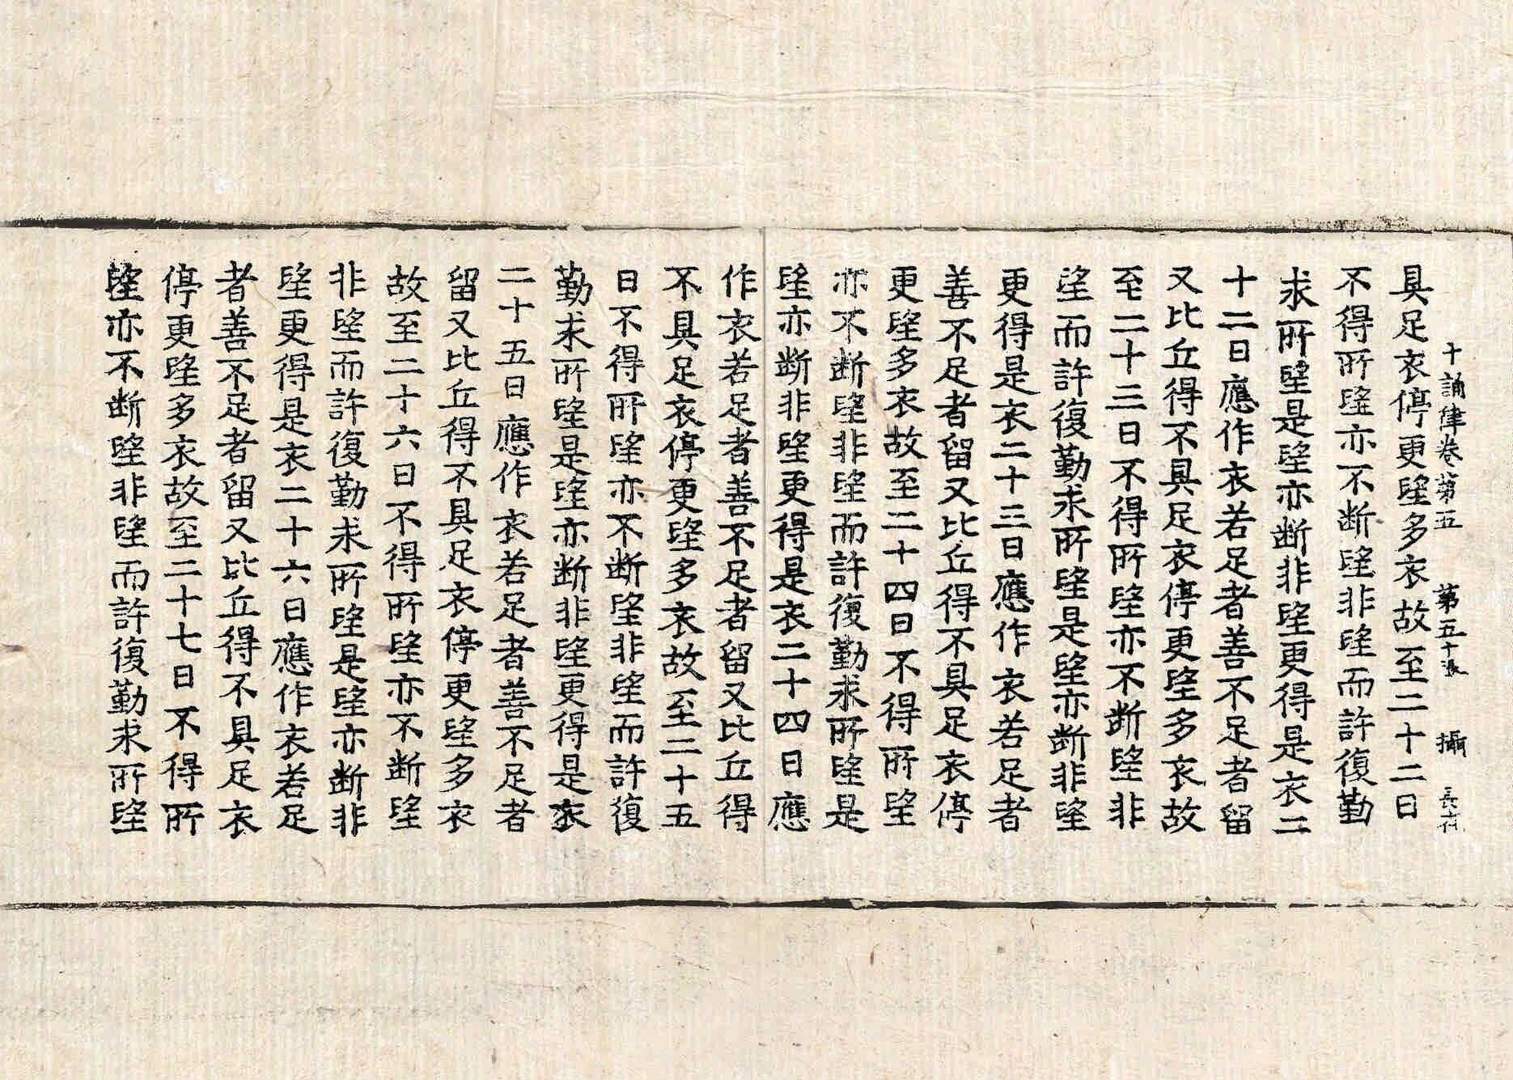 十誦律卷第五 第五十張 攝
具足衣停更望多衣故至二十二日
不得所望亦不断望非望而許復勤
求所望是望亦断非望更得是衣二
十二日應作衣若足者善不足者留
又比丘得不具足衣停更望多衣故
至二十三日不得所望亦不断望非
望而許復勤求所望是望亦断非望
更得是衣二十三日應作衣若足者
善不足者留又比丘得不具足衣停
更望多衣故至二十四日不得所望
亦不断望非望而許復勤求所望是
望亦断非望更得是衣二十四日應
作衣若足者善不足者留又比丘得
不具足衣停更望多衣故至二十五
日不得所望亦不断望非望而許復
勤求所望是望亦断非望更得是衣
二十五日應作衣若足者善不足者
留又比丘得不具足衣停更望多衣
故至二十六日不得所望亦不断望
非望而許復勤求所望是望亦断非
望更得是衣二十六日應作衣若足
者善不足者留又比丘得不具足衣
停更望多衣故至二十七日不得所
望亦不断望非望而許復勤求所望